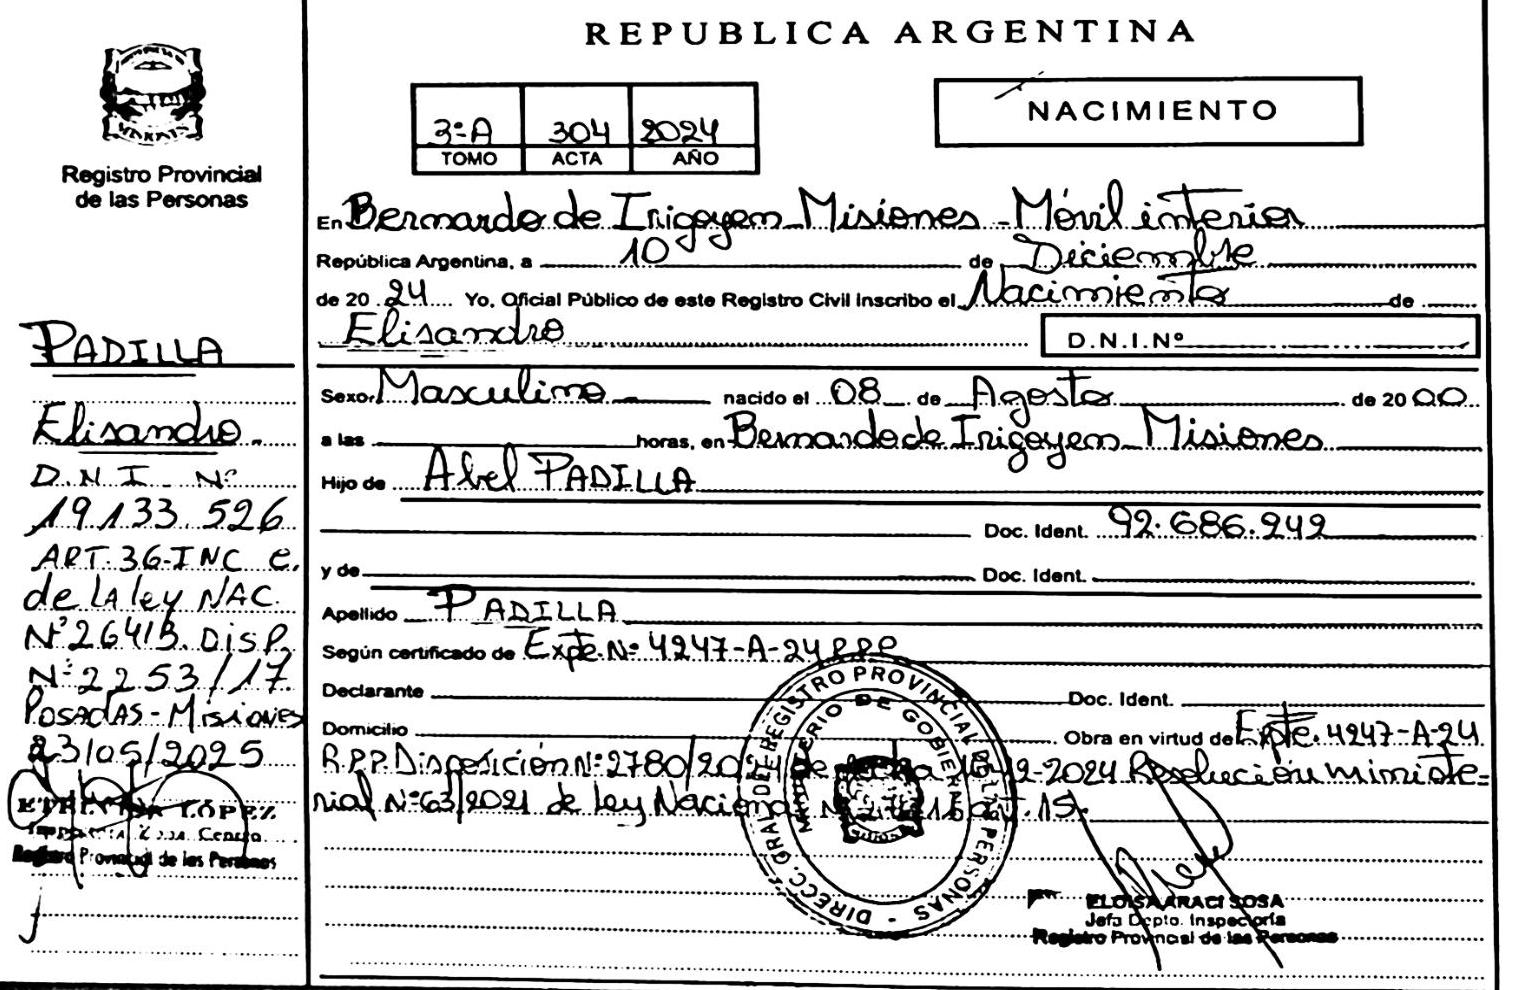 REPUBLICA ARGENTINA
NACIMIENTO
3ºA 304 2024
TOMO ACTA AÑO
Registro Provincial
de las Personas
En Bernardo de Irigoyen Misiones - Móvil interior
República Argentina, a 10 de Diciembre
de 20 24 Yo, Oficial Público de este Registro Civil Inscribo el Nacimiento de
Elisandro D.N.I.Nº
Sexo Masculino nacido el 08 de Agosto de 20 00
a las horas, en Bernardo de Irigoyen Misiones
Hijo de Abel PADILLA
Doc. Ident. 92.686.242
y de Doc. Ident.
Apellido PADILLA
Según certificado de Expte. Nº 4247-A-24 R.P.P
Declarante Doc. Ident.
Domicilio Obra en virtud de Expte. 4247-A-24
R.P.P. Disposición Nº 2780/2024 de fecha 10-12-2024 Resolución ministe=
rial Nº 63/2021 de Ley Nacional Nº art. 15.
DIRECC. GRAL. DEL REGISTRO PROVINCIAL DE LAS PERSONAS
MINISTERIO DE GOBIERNO
ELOISA ARACI SOSA
Jefa Depto. Inspectoría
Registro Provincial de las Personas
PADILLA
Elisandro.
D.N.I. Nº
19.133.526
ART.36-INC e.
de LA ley NAC.
Nº26413. DISP.
Nº2253/17.
POSADAS-MISIONES
23/05/2025
LÓPEZ
Zona Centro
Registro Provincial de las Personas